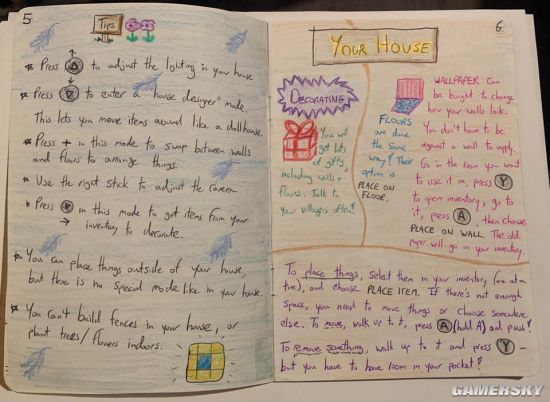 5
Tips
* Press ▲ to adjust the lighting in your house
* Press ▼ to enter a "house designer" mode.
This lets you move items around like a dollhouse.
* Press + in this mode to swap between walls
and floors to arrange things.
* Use the right stick to adjust the camera
* Press in this mode to get items from your
→ inventory to decorate.
* You can place things outside of your house,
but there is no special mode like in your house.
* You can't build fences in your house, or
plant trees/flowers indoors.
6
YOUR HOUSE
DECORATING
You will
get lots
of gifts,
including walls +
floors. Talk to
your villagers often!
FLOORS
are done
the same
way! Their
option is
PLACE ON
FLOOR.
WALLPAPER can
be bought to change
how your walls look.
You don't have to be
against a wall to apply.
Go in the room you want
to use it in, press Y
to open inventory, go to
it, press A, then choose
PLACE ON WALL. The old
paper will go in your inventory.
To place things, select them in your inventory (one at a
time), and choose PLACE ITEM. If there's not enough
space, you need to move things or choose somewhere
else. To move, walk up to it, press A (hold A) and push!
To remove something, walk up to it and press Y –
but you have to have room in your pocket!
GAMERSKY